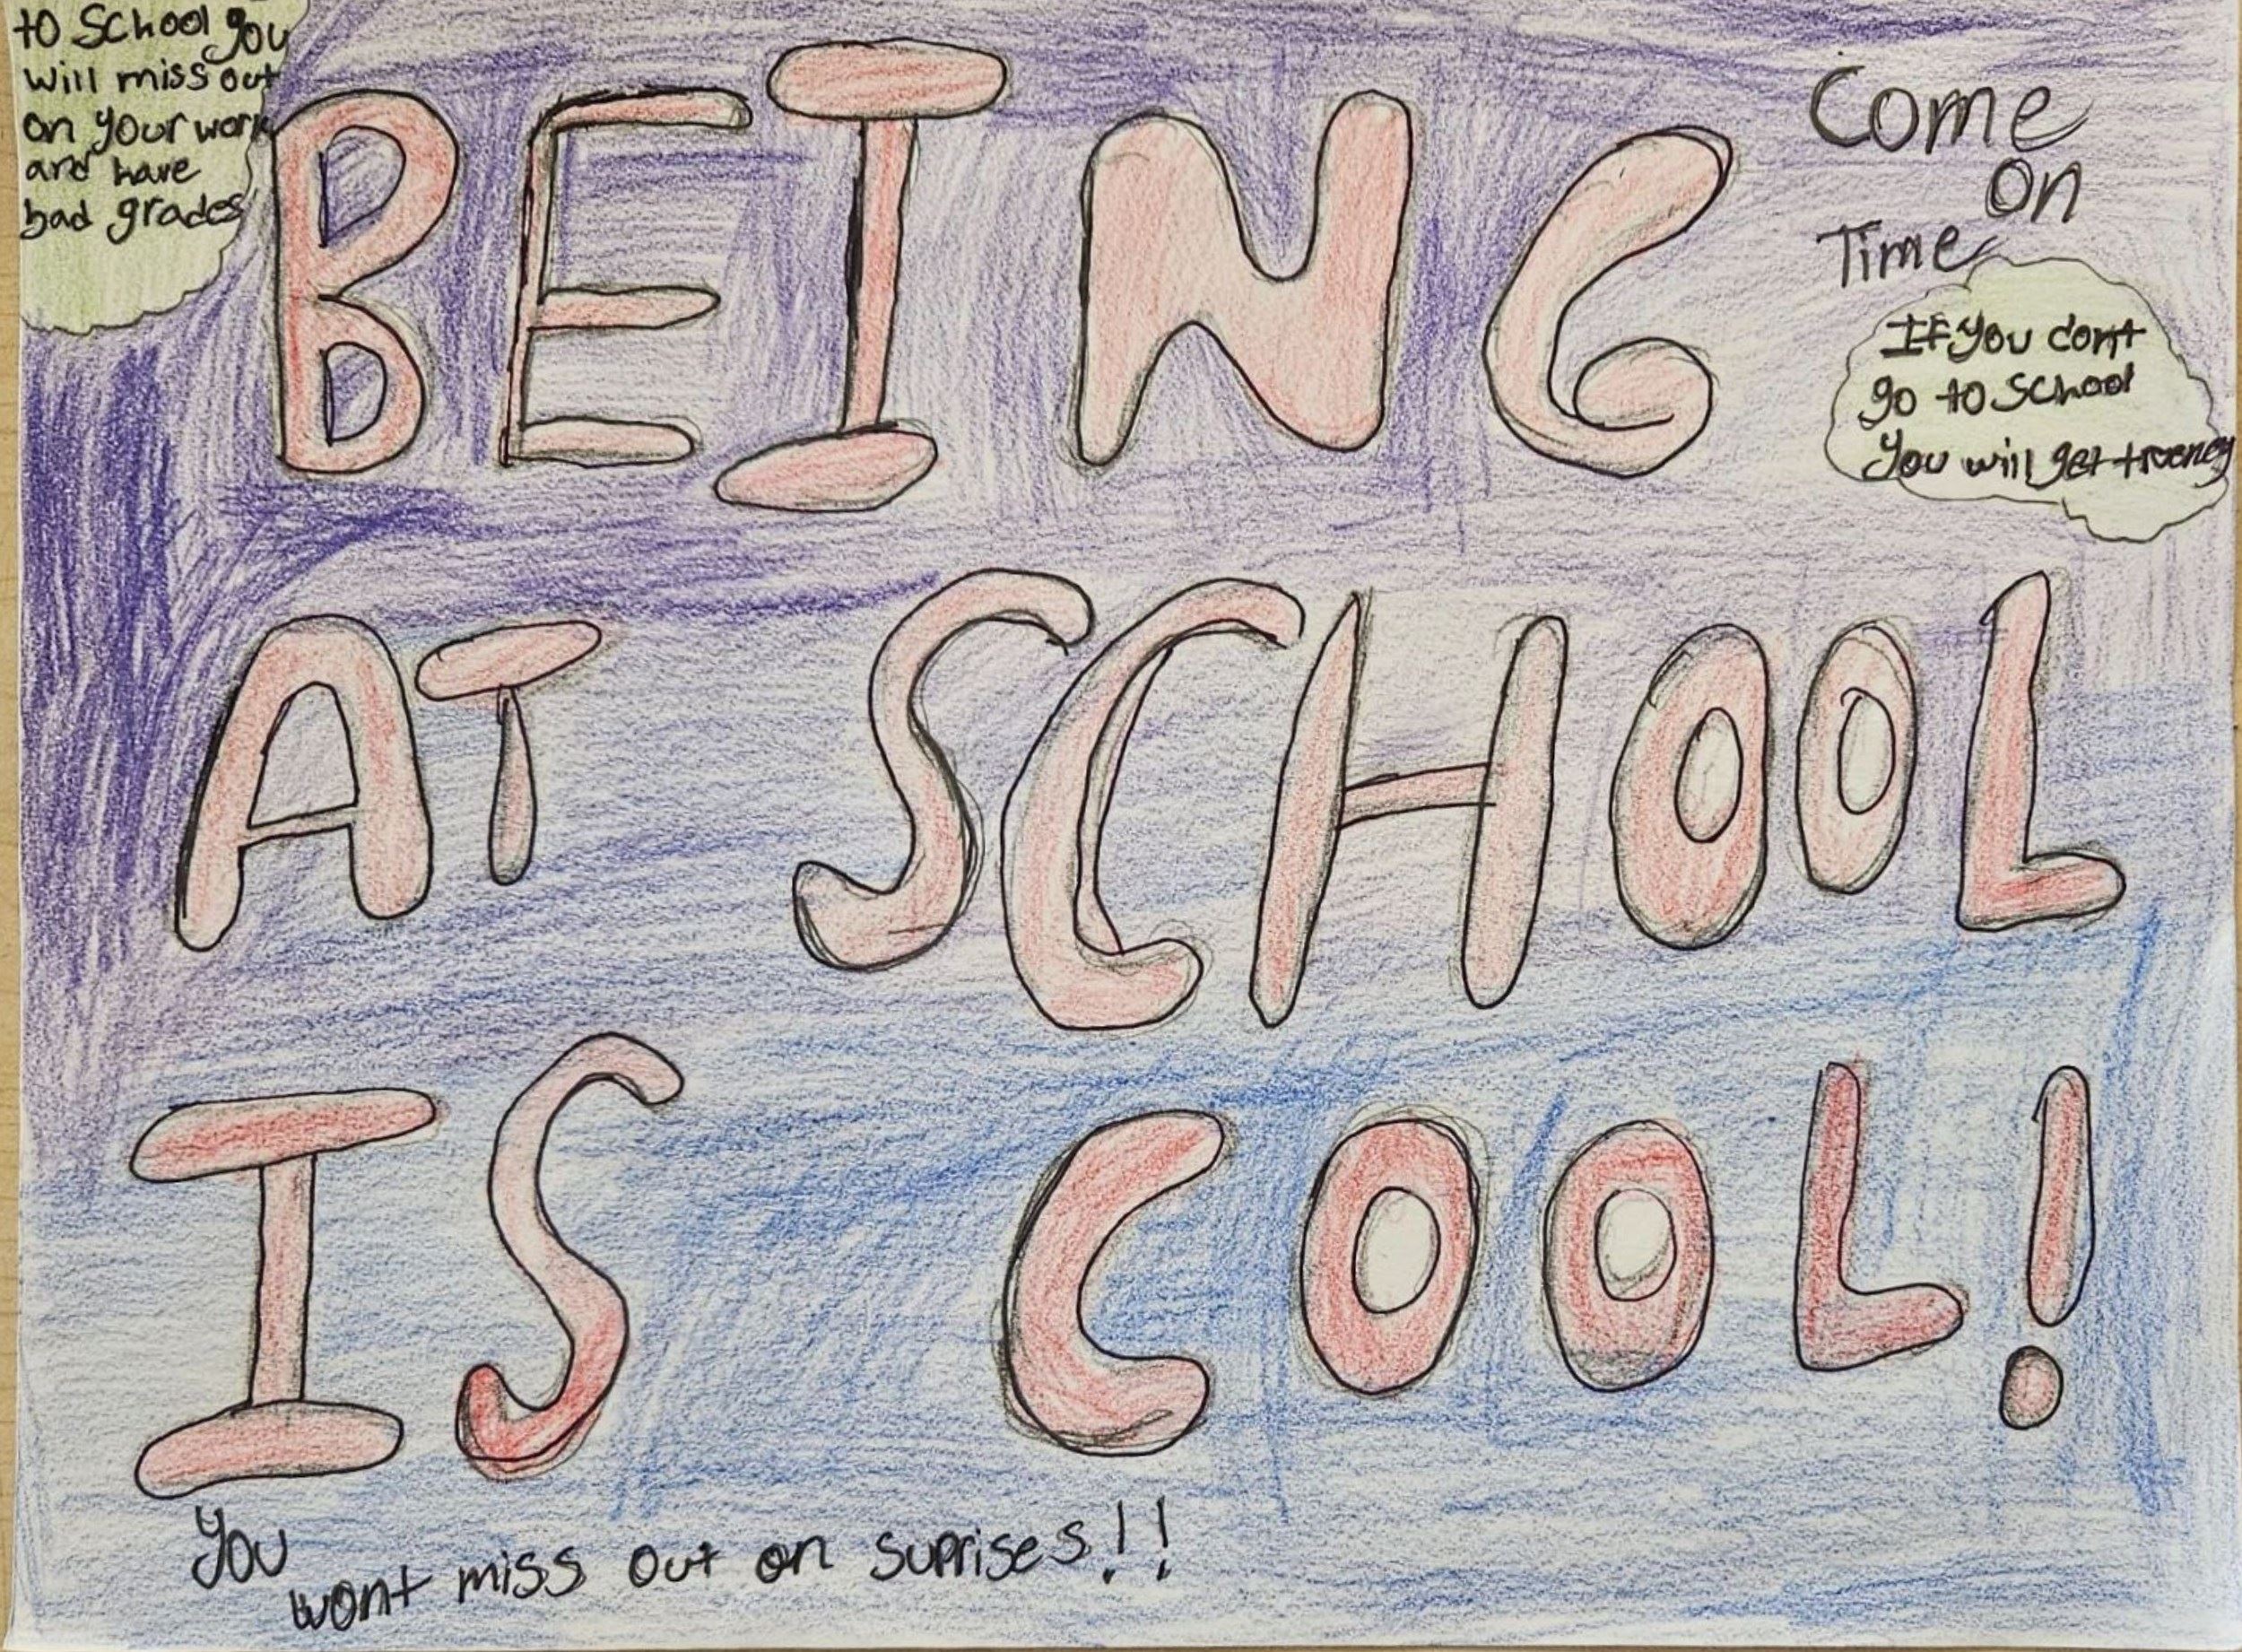 to School you
will miss out
on your work
and have
bad grades
Come
On
Time
If you dont
go to School
You will get trueney
BEING
AT SCHOOL
IS COOL!
You
wont miss out on suprises!!